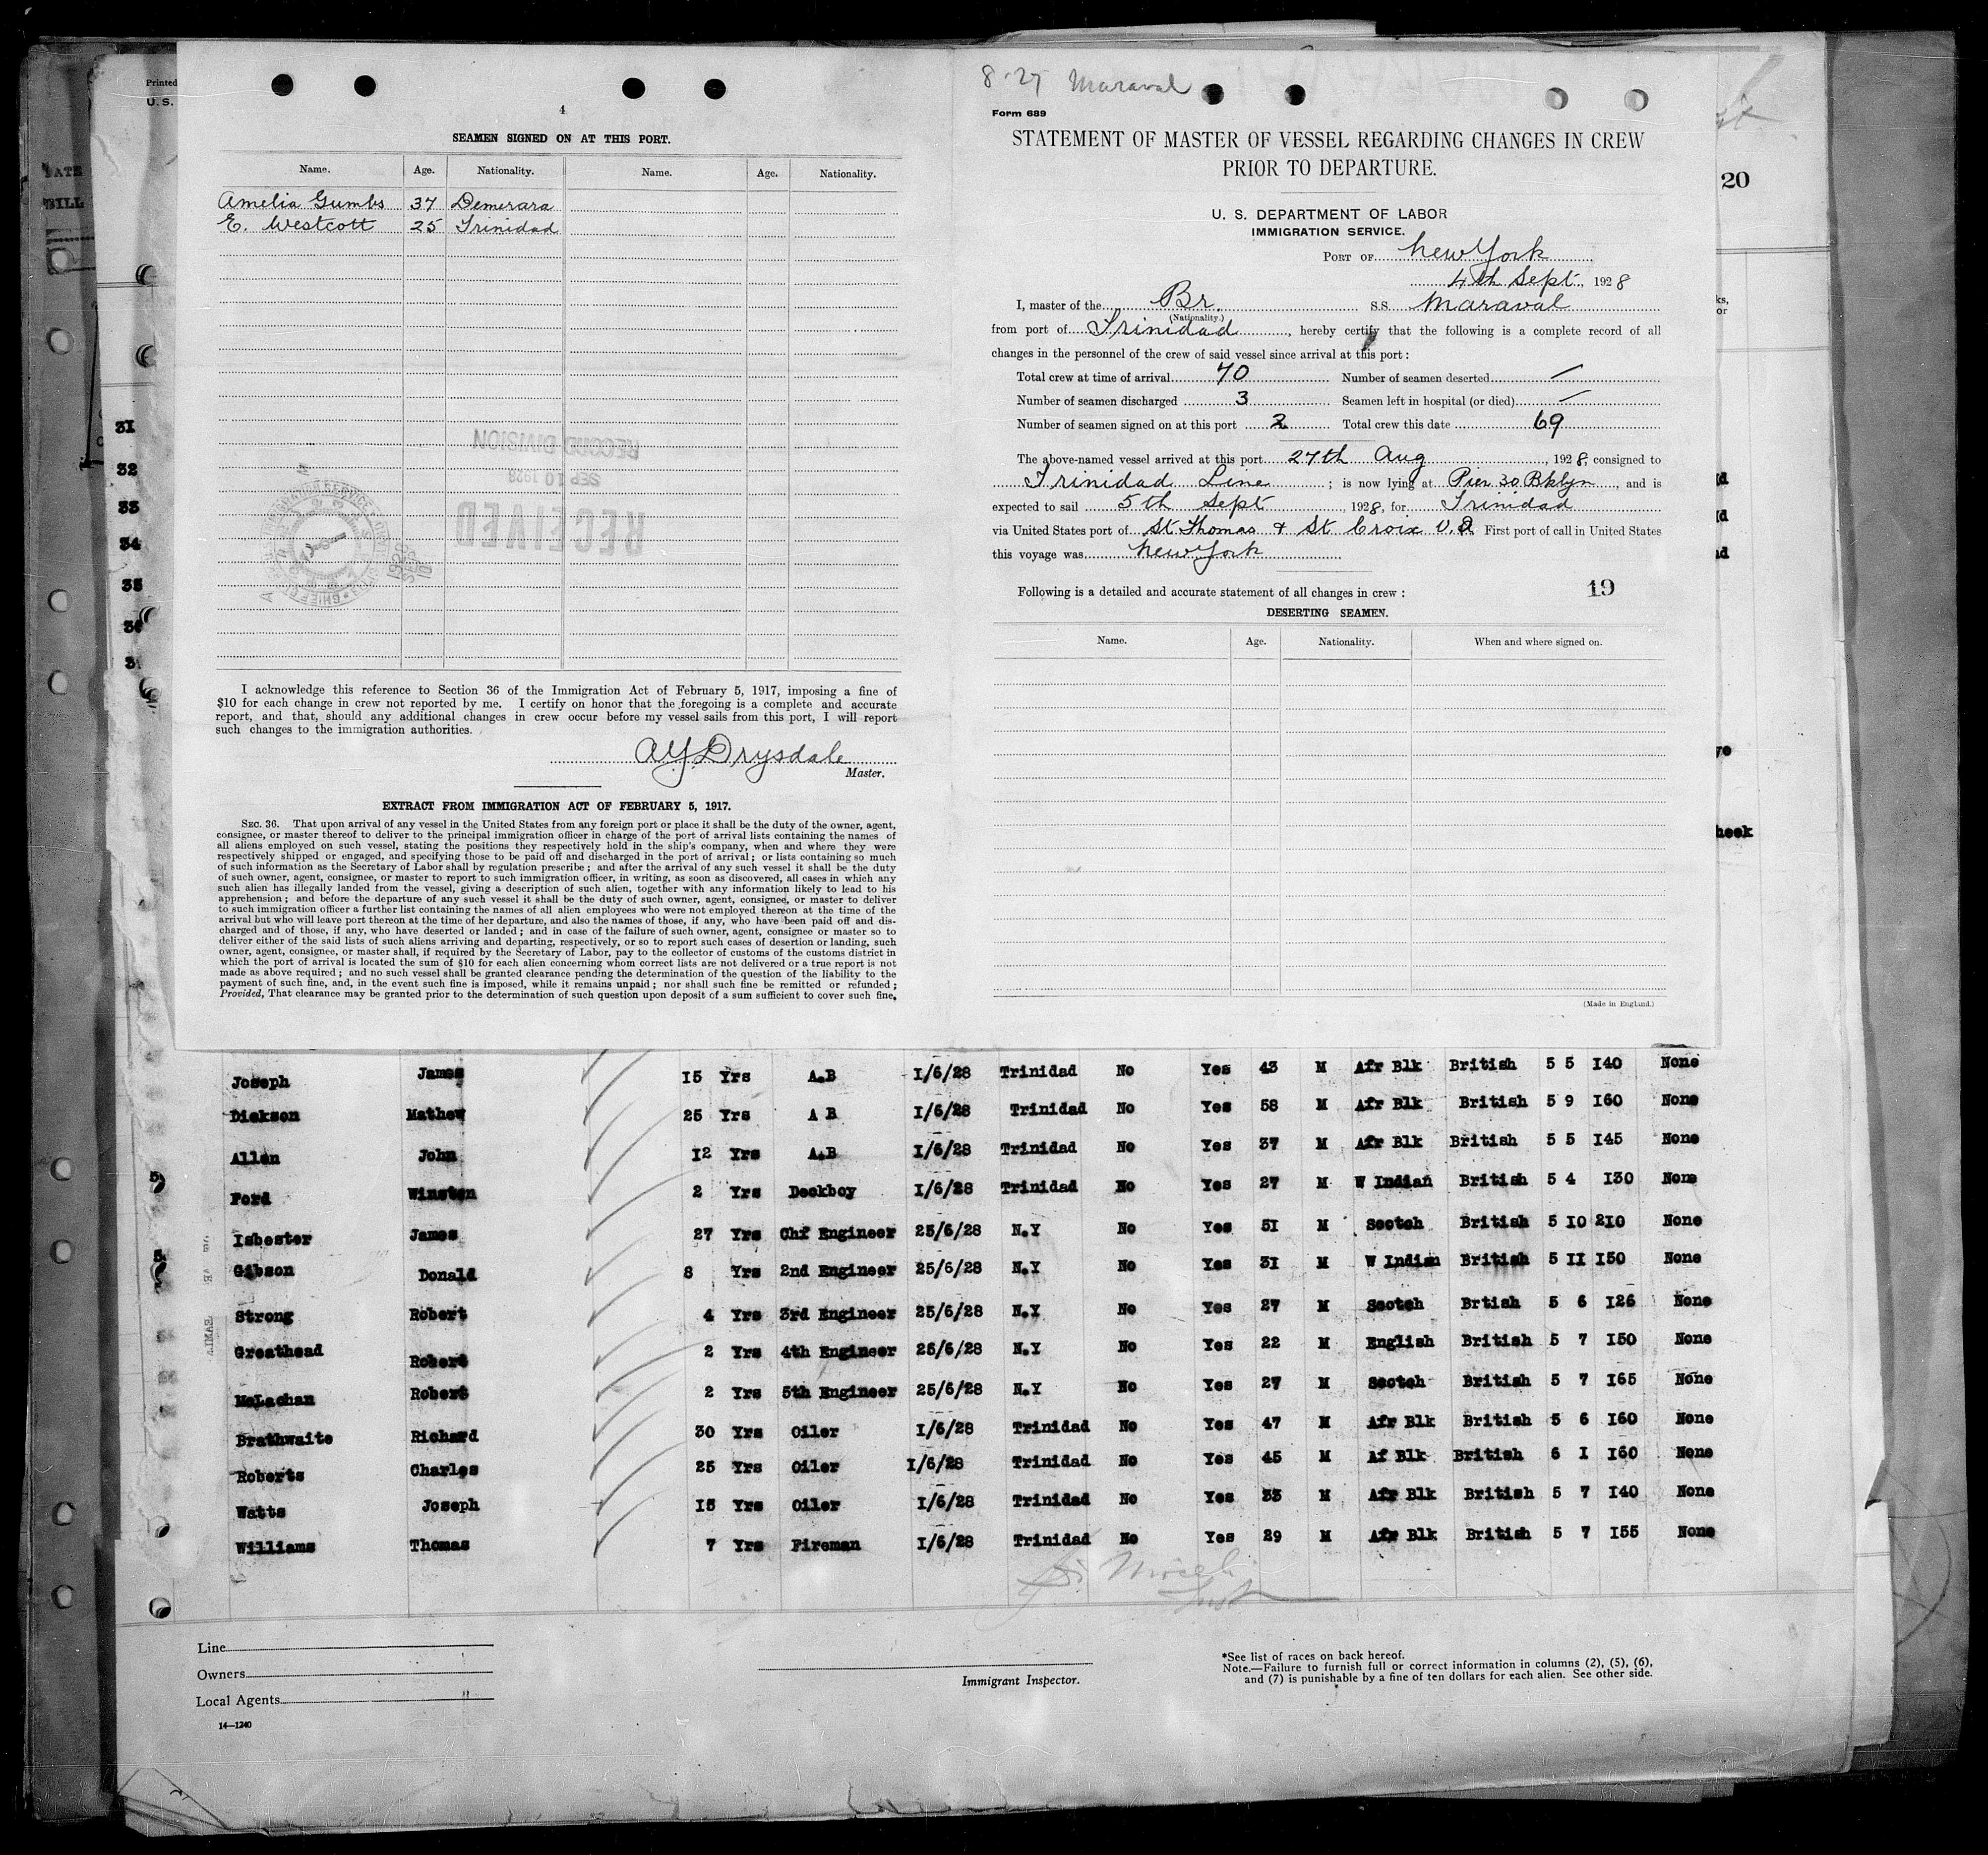 Printed
U. S.
4
SEAMEN SIGNED ON AT THIS PORT.
Name. Age. Nationality. Name. Age. Nationality.
Amelia Gumbs 37 Demerara
E. Westcott 25 Trinidad
RECORD DIVISION
SEP 10 1928
RECEIVED
I acknowledge this reference to Section 36 of the Immigration Act of February 5, 1917, imposing a fine of
$10 for each change in crew not reported by me. I certify on honor that the foregoing is a complete and accurate
report, and that, should any additional changes in crew occur before my vessel sails from this port, I will report
such changes to the immigration authorities.
A Y Drysdale
Master.
EXTRACT FROM IMMIGRATION ACT OF FEBRUARY 5, 1917.
SEC. 36. That upon arrival of any vessel in the United States from any foreign port or place it shall be the duty of the owner, agent,
consignee, or master thereof to deliver to the principal immigration officer in charge of the port of arrival lists containing the names of
all aliens employed on such vessel, stating the positions they respectively hold in the ship's company, when and where they were
respectively shipped or engaged, and specifying those to be paid off and discharged in the port of arrival; or lists containing so much
of such information as the Secretary of Labor shall by regulation prescribe; and after the arrival of any such vessel it shall be the duty
of such owner, agent, consignee, or master to report to such immigration officer, in writing, as soon as discovered, all cases in which any
such alien has illegally landed from the vessel, giving a description of such alien, together with any information likely to lead to his
apprehension; and before the departure of any such vessel it shall be the duty of such owner, agent, consignee, or master to deliver
to such immigration officer a further list containing the names of all alien employees who were not employed thereon at the time of the
arrival but who will leave port thereon at the time of her departure, and also the names of those, if any, who have been paid off and dis-
charged and of those, if any, who have deserted or landed; and in case of the failure of such owner, agent, consignee or master so to
deliver either of the said lists of such aliens arriving and departing, respectively, or so to report such cases of desertion or landing, such
owner, agent, consignee, or master shall, if required by the Secretary of Labor, pay to the collector of customs of the customs district in
which the port of arrival is located the sum of $10 for each alien concerning whom correct lists are not delivered or a true report is not
made as above required; and no such vessel shall be granted clearance pending the determination of the question of the liability to the
payment of such fine, and, in the event such fine is imposed, while it remains unpaid; nor shall such fine be remitted or refunded;
Provided, That clearance may be granted prior to the determination of such question upon deposit of a sum sufficient to cover such fine,
8-27 Maraval
Form 689
STATEMENT OF MASTER OF VESSEL REGARDING CHANGES IN CREW
PRIOR TO DEPARTURE.
U. S. DEPARTMENT OF LABOR
IMMIGRATION SERVICE.
PORT OF New York
4th Sept, 1928
I, master of the Br. S.S. Maraval
(Nationality.)
from port of Trinidad, hereby certify that the following is a complete record of all
changes in the personnel of the crew of said vessel since arrival at this port:
Total crew at time of arrival 70 Number of seamen deserted /
Number of seamen discharged 3 Seamen left in hospital (or died) /
Number of seamen signed on at this port 2 Total crew this date 69
The above-named vessel arrived at this port 27th Aug, 1928, consigned to
Trinidad Line; is now lying at Pier 30 Bklyn, and is
expected to sail 5th Sept 1928, for Trinidad
via United States port of St Thomas & St Croix V.I. First port of call in United States
this voyage was New York
Following is a detailed and accurate statement of all changes in crew: 19
DESERTING SEAMEN.
Name. Age. Nationality. When and where signed on.
(Made in England.)
20
31
32
33
34
35
36
Joseph James 15 Yrs A.B 1/6/28 Trinidad No Yes 43 M Afr Blk British 5 5 140 None
Dickson Mathew 25 Yrs A B 1/6/28 Trinidad No Yes 58 M Afr Blk British 5 9 160 None
Allen John 12 Yrs A.B 1/6/28 Trinidad No Yes 37 M Afr Blk British 5 5 145 None
Ford Winston 2 Yrs Deckboy 1/6/28 Trinidad No Yes 27 M W Indian British 5 4 130 None
Isbester James 27 Yrs Chf Engineer 25/6/28 N.Y No Yes 51 M Scotch British 5 10 210 None
Gibson Donald 8 Yrs 2nd Engineer 25/6/28 N.Y No Yes 31 M W Indian British 5 11 150 None
Strong Robert 4 Yrs 3rd Engineer 25/6/28 N.Y No Yes 27 M Scotch Brtish 5 6 126 None
Greathead Robert 2 Yrs 4th Engineer 25/6/28 N.Y No Yes 22 M English British 5 7 150 None
McLachan Robert 2 Yrs 5th Engineer 25/6/28 N.Y No Yes 27 M Scotch British 5 7 165 None
Brathwaite Richard 30 Yrs Oiler 1/6/28 Trinidad No Yes 47 M Afr Blk British 5 6 160 None
Roberts Charles 25 Yrs Oiler 1/6/28 Trinidad No Yes 45 M Af Blk British 6 1 160 None
Watts Joseph 15 Yrs Oiler 1/6/28 Trinidad No Yes 33 M Afr Blk British 5 7 140 None
Williams Thomas 7 Yrs Fireman 1/6/28 Trinidad No Yes 29 M Afr Blk British 5 7 155 None
Line
Owners
Local Agents
14—1240
Immigrant Inspector.
*See list of races on back hereof.
Note.—Failure to furnish full or correct information in columns (2), (5), (6),
and (7) is punishable by a fine of ten dollars for each alien. See other side.